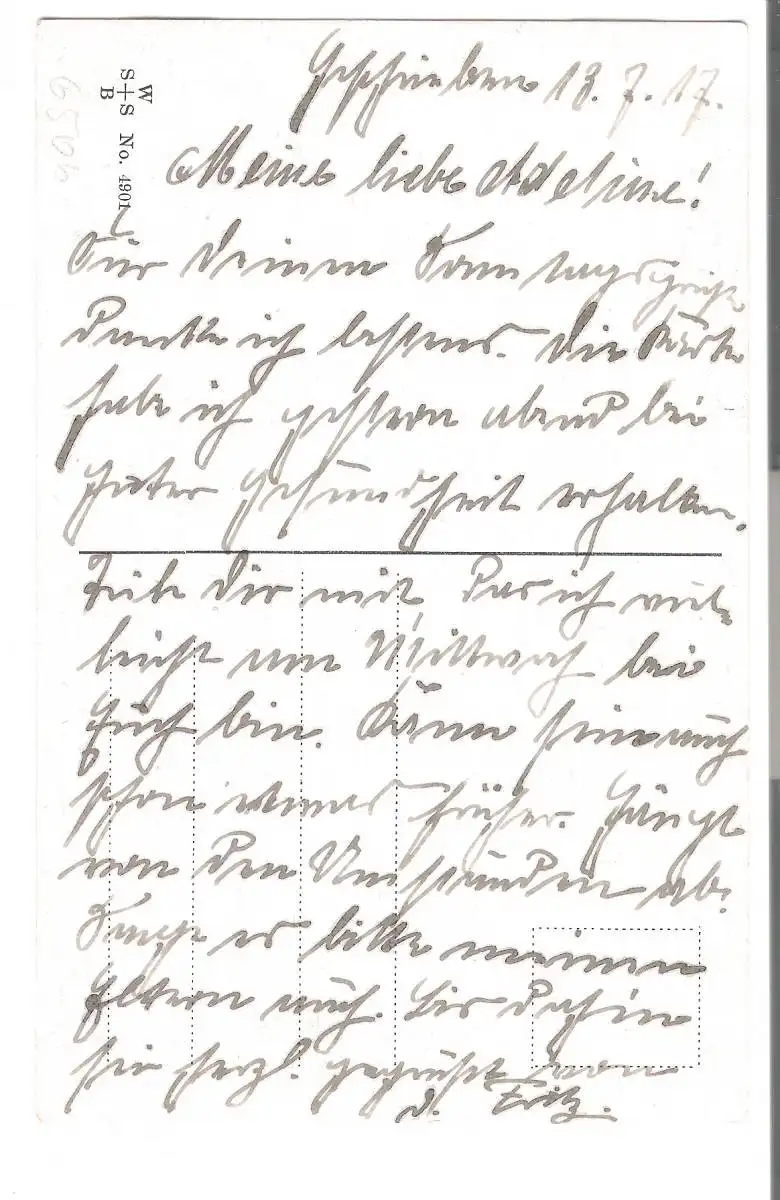 W
S+S No. 4901
B
Geschrieben 13. 7. 17.
Meine liebe Adeline!
Für deinen Sonntagsgruß
Danke ich bestens. Die Karte
habe ich gestern abend bei
guter Gesundheit erhalten.
Teile Dir mit, Das ich viel-
leicht um Mittwoch bei
Euch bin. Kann sein auch
schon etwas früher. Hängt
von Den Umständen ab.
Sage es bitte meinen
Eltern auch. Bis Dahin
sei herzl. gegrüßt von
d. Fritz.